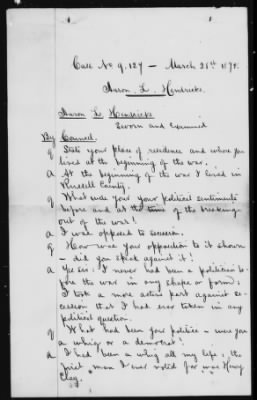 Case No 9,127 - March 28th 1871.
Aaron L. Hendricks.
Aaron L. Hendricks
Sworn and Examined
By Counsel.
Q State your place of residence and where you
lived at the beginning of the war.
A At the beginning of the war I lived in
Russell County.
Q What were your political sentiments
before and at the time of the breaking
out of the war?
A I was opposed to secession.
Q How was your opposition to it shown
- did you speak against it?
A Yes sir; I never had been a politician be
fore the war in any shape or form;
I took a more active part against se-
cession that I had ever taken in any
political question.
Q What had been your politics - were you
a whig or a democrat?
A I had been a whig all my life; the
first man I ever voted for was Henry
Clay.